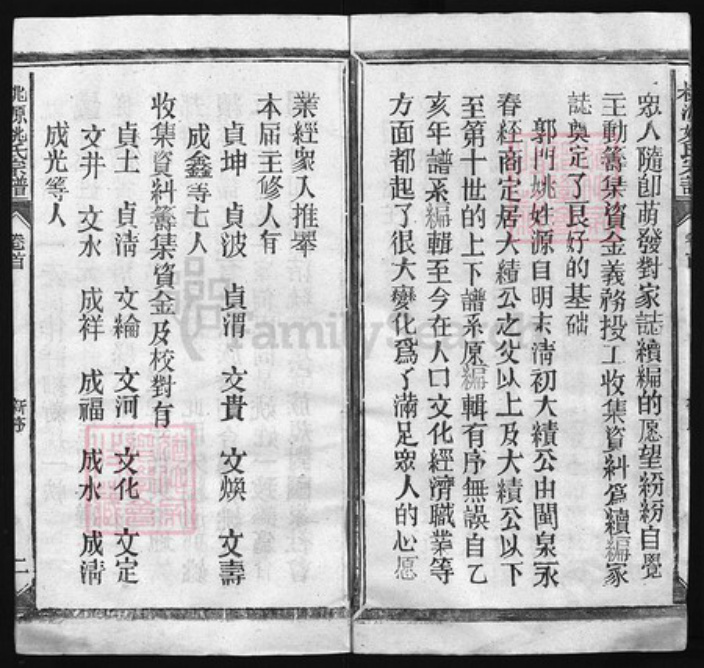 眾人隨卽萌發對家誌續編的愿望紛紛自覺
主動籌集資金義務投工收集資料爲續編家
誌奠定了良好的基础
郭門姚姓源自明末淸初大績公由閩泉永
春經商定居大績公之父以上及大績公以下
至第十世的上下譜系原編輯有序無誤自乙
亥年譜系編輯至今在人口文化經濟職業等
方面都起了很大變化爲了滿足眾人的心愿
業經眾人推舉
本屆主修人有
貞坤 貞波 貞渭 文貴 文煥 文壽
成鑫等七人
收集資料籌集資金及校對有
貞土 貞淸 文綸 文河 文化 文定
文井 文水 成祥 成福 成水 成淸
成光等人
桃源姚氏宗譜 卷首 二
FamilySearch